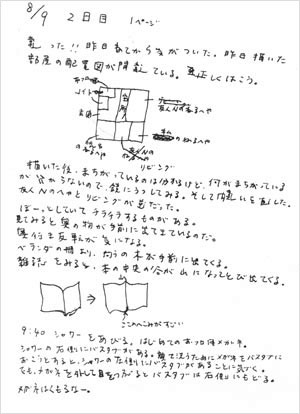 8/9 2日目 1ページ
昨日あてから気がついた。昨日描いた
部屋の配置図が間違っている。正しくはこう。
トイレ
玄関
台所
友人Nのへや
リビング
描いた後、まちがっているのは分かるけど、何がまちがっているか
が分からないので、鏡にうつしてみる。そして間違いを直した。
友人Nのへやとリビングが逆だった。
ぼーっとしていてチラチラするものがある。
見てみると奥の物が手前に出て立っているのだ。
奥行き反転が気になる。
ベランダの柵より、向うの木が手前に出てくる。
雑誌をみると、本の中央の谷が山になってとび出てくる。
ここのへこみがすごい
9:40 シャワーをあびる。はじめてのおフロ用メガネ。
シャワーの右側にバスタブがある。顔を洗うためにメガネをバスタブに
おこうとすると、シャワーの左側にバスタブがあることに気づく。
でも、メガネを外して目をつぶるとバスタブは右側にもどる。
メガネはくもるなー。